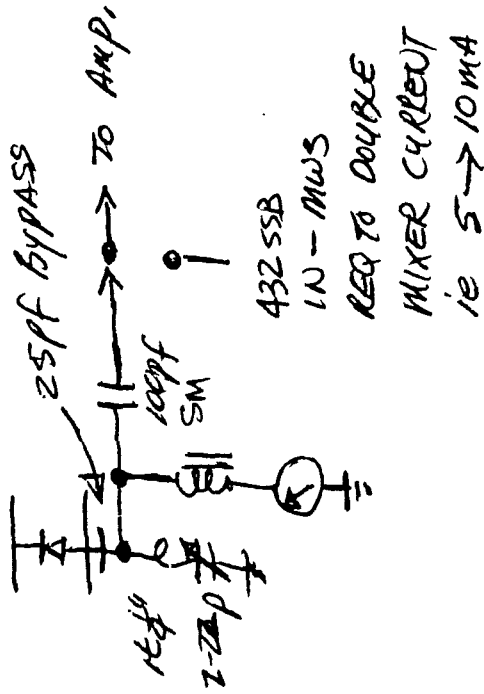 25pf BYPASS
TO AMP.
100pf
SM
432 SSB
IN - MWS
REQ TO DOUBLE
MIXER CURRENT
ie 5 → 10 mA